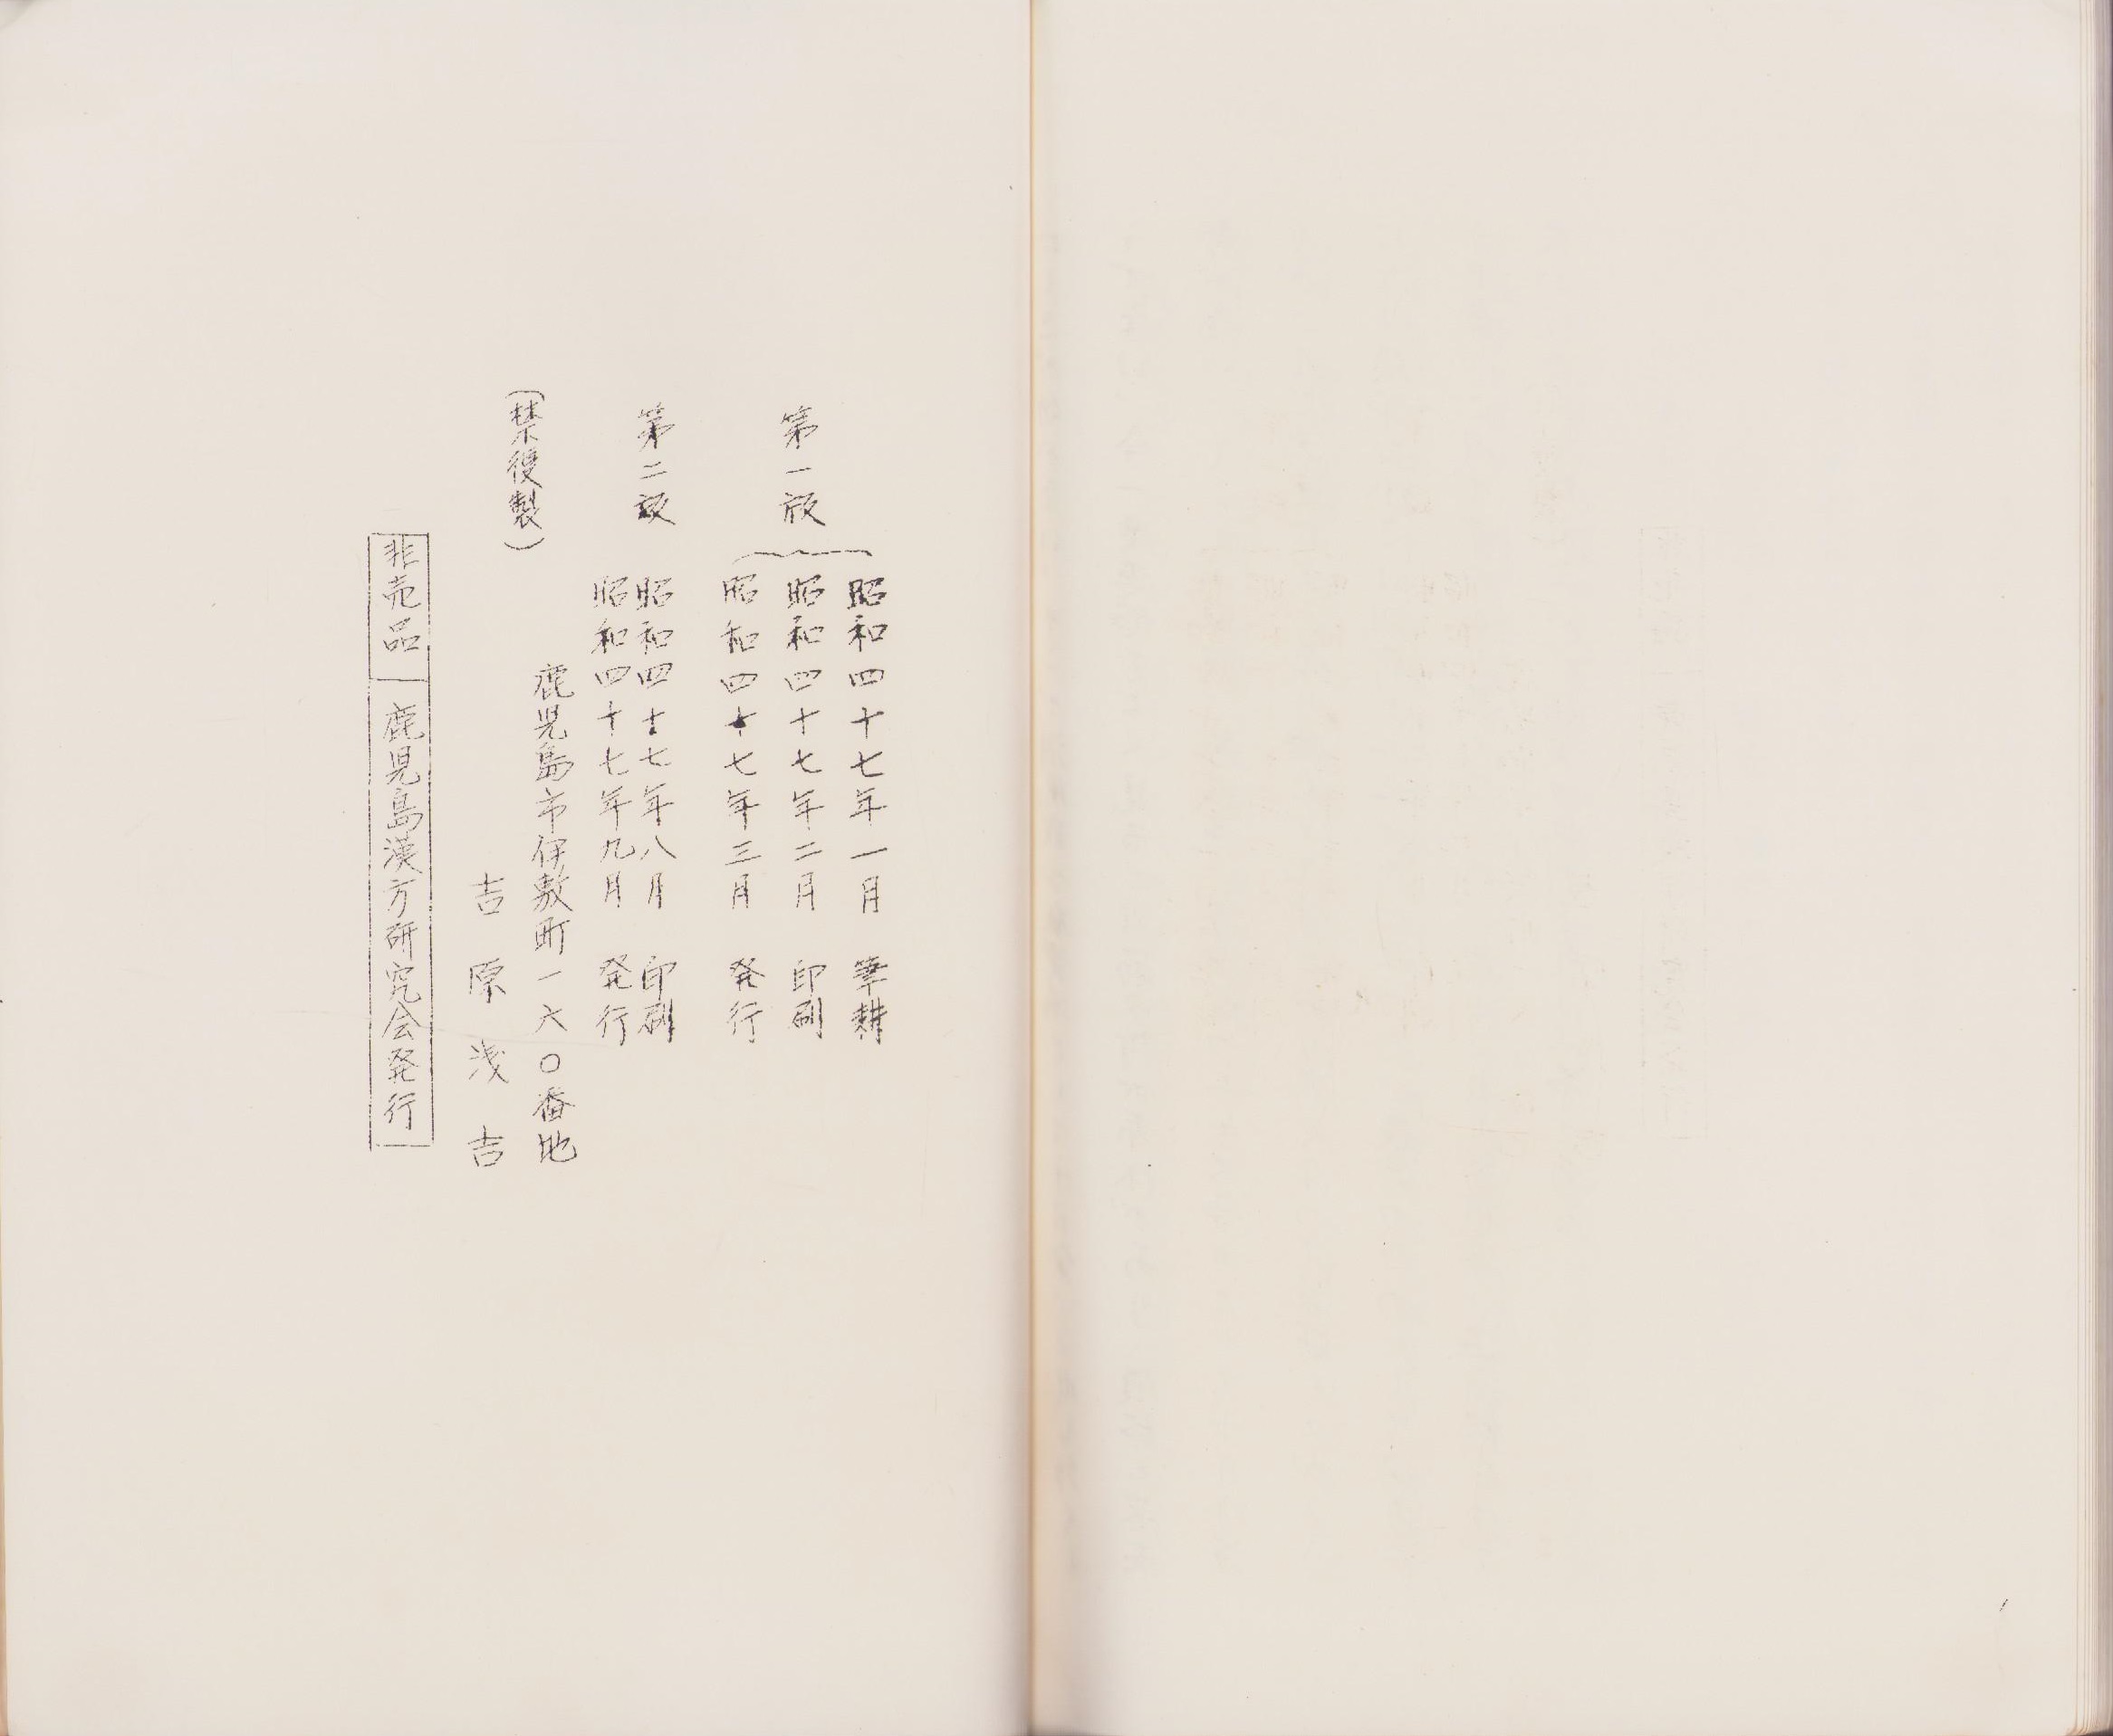 第一版
昭和四十七年一月 筆耕
昭和四十七年二月 印刷
昭和四十七年三月 発行
第二版
昭和四十七年八月 印刷
昭和四十七年九月 発行
(禁復製)
鹿児島市伊敷町一六〇番地
吉原浅吉
非売品 鹿児島漢方研究会発行